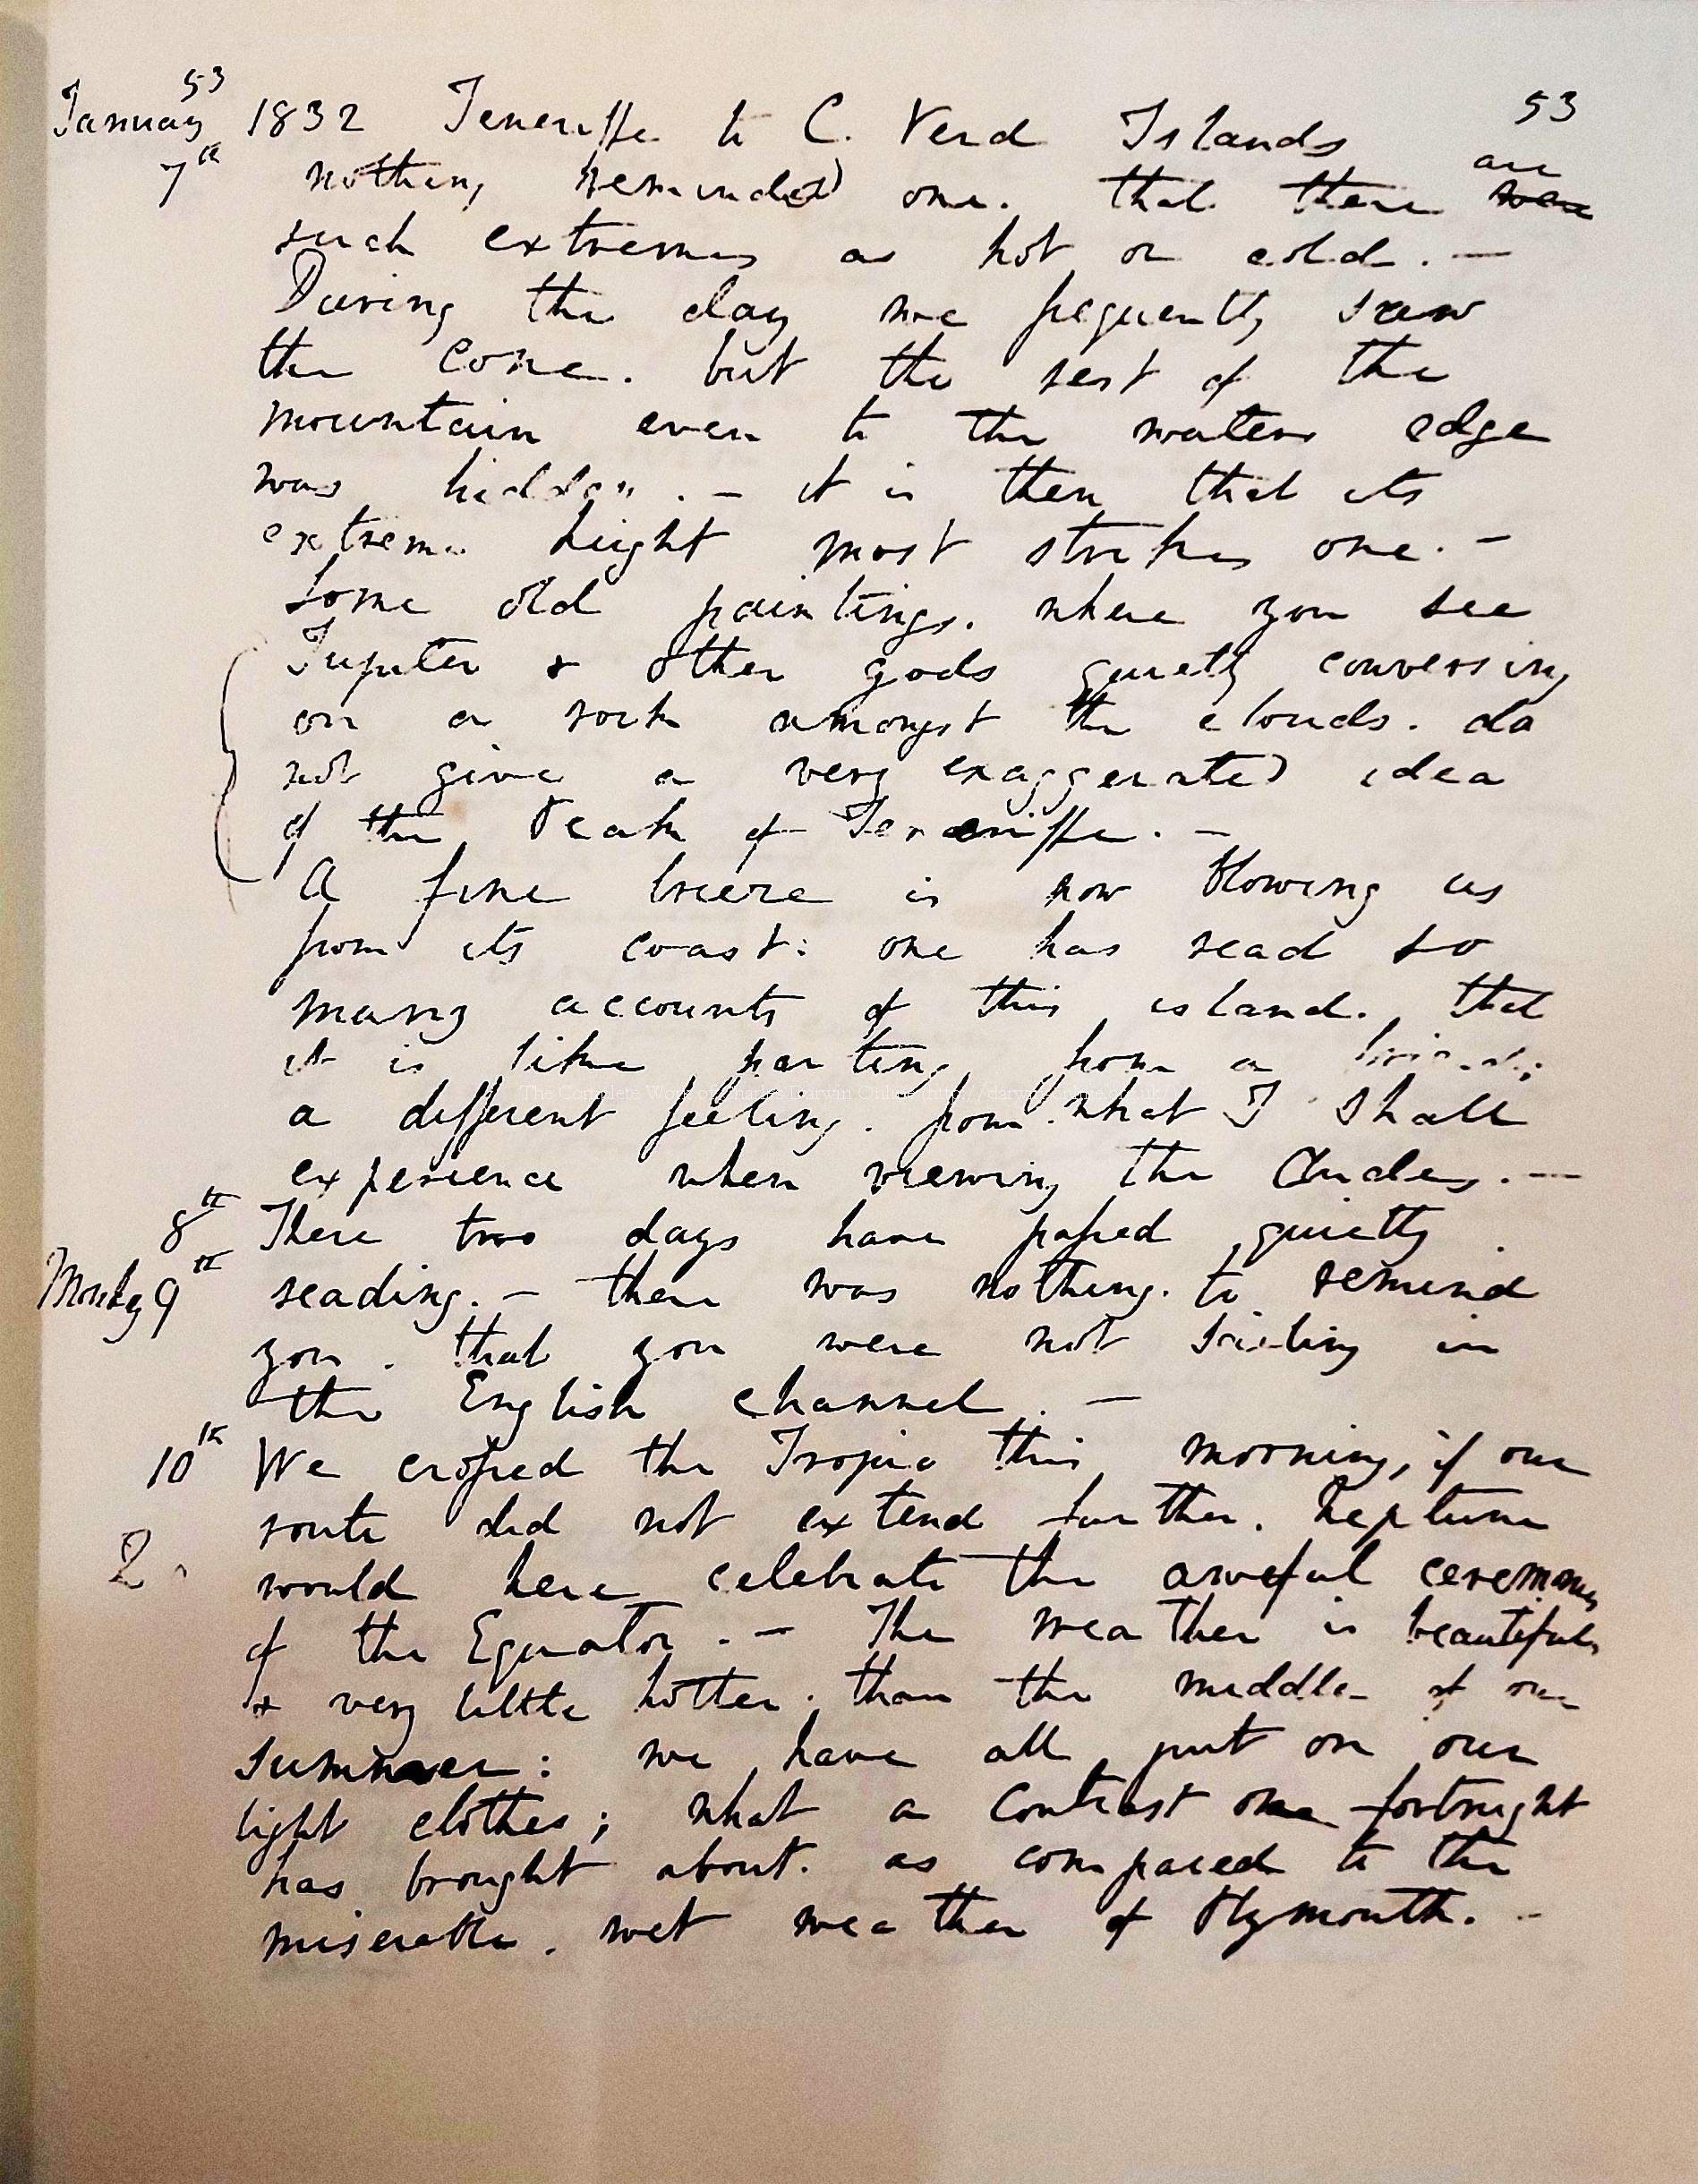 53
January 1832 Teneriffe to C. Verd Islands 53
7th nothing reminded one. that there are were
such extremes as hot or cold. —
During the day we frequently saw
the cone. but the rest of the
mountain even to the waters edge
was hidden. — it is then that its
extreme height most strikes one. —
Some old paintings, where you see
Jupiter & other gods quietly conversing
on a rock amongst the clouds. do
not give a very exaggerated idea
of the Peak of Teneriffe. —
A fine breeze is now blowing us
from its coast: one has read so
many accounts of this island. that
it is like parting from a friend;
a different feeling. from what I shall
experience when viewing the Andes. —
8th These two days have passed quietly
Monday 9th reading. — there was nothing. to remind
you. that you were not sailing in
the English channel. —
10th We crossed the Tropic this morning, if our
route did not extend further. Neptune
2. would here celebrate the aweful ceremony
of the Equator. — The weather is beautiful,
& very little hotter. than the middle of our
summer: we have all put on our
light clothes; what a contrast one fortnight
has brought about. as compared to the
miserable. wet weather of Plymouth. —